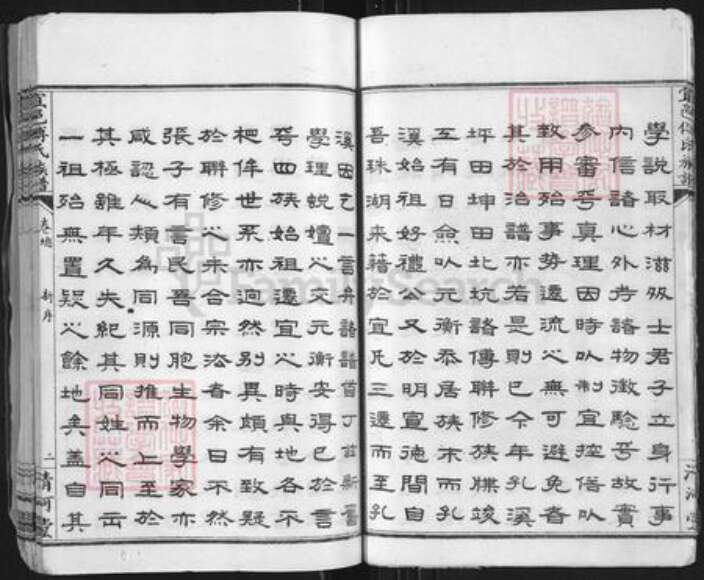 學說取材滋効士君子立身行事
內信諸心外考諸物徵驗乎故實
參審乎真理因時以制宜控偣以
致用殆事勢遷流之無可避免者
其於治譜亦若是則已今年孔溪
坪田坤田北坑諸傳聯修族牒竣
工有日僉以元衡忝居族末而孔
溪始祖好禮公又於明宣德間自
吾珠湖來籍於宜凡三遷而至孔
溪因乞一言弁諸譜首丁茲新舊
學理蛻嬗之交元衡安得已於言
乎四族始祖遷宜之時與地各不
相侔世系亦迥然別異頗有致疑
於聯修之未合宗法者余曰不然
張子有言民吾同胞生物學家亦
咸認人類為同源則推而上至於
其極雖年久失紀其同姓之同出
一祖殆無置疑之餘地矣蓋自其
宜邑傅氏族譜
卷總
新序
二
清河堂
FamilySearch